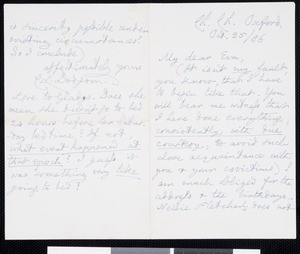 Ch. Ch. Oxford.
Oct. 25/86
My dear Eva,
(It isn't my fault,
you know, that I have
to begin like that. You
will bear me witness that
I have done everything,
consistently with true
courtesy, to avoid such
close acquaintance with
you & your sisters!) I
am much obliged for the
&
Nellie does not
is sincerely possible under
existing circumstances.
So I conclude
affectionately yours
C. L. Dodgson
Love to Gladys. Does she
mean she didn't go to bed
24 hours before
bed-time? If not
what event happened at
that epoch? I hope it
was something very like
going to bed!